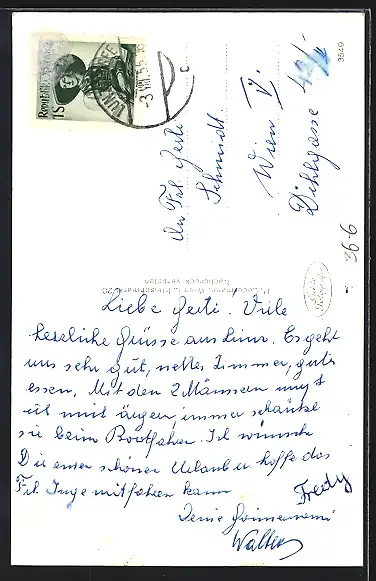 Republik Österreich
1S
-3.VIII.55
3549
An Frl. Gerti
Schmidt
Wien V.
Diehlgasse
36-6
P. Ledermann, Wien I., Fleischmarkt 20
Nachdruck verboten
Liebe Gerti! Viele
herzliche Grüsse aus Lunz. Es geht
uns sehr gut, nettes Zimmer, gutes
essen. Mit den 2 Männern muß
ich mich ärgern, immer
sie beim Bootfahren. Ich wünsche
Dir einen schönen Urlaub u. hoffe das
Frl. Inge mitfahren kann
Fredy
Deine
Walter